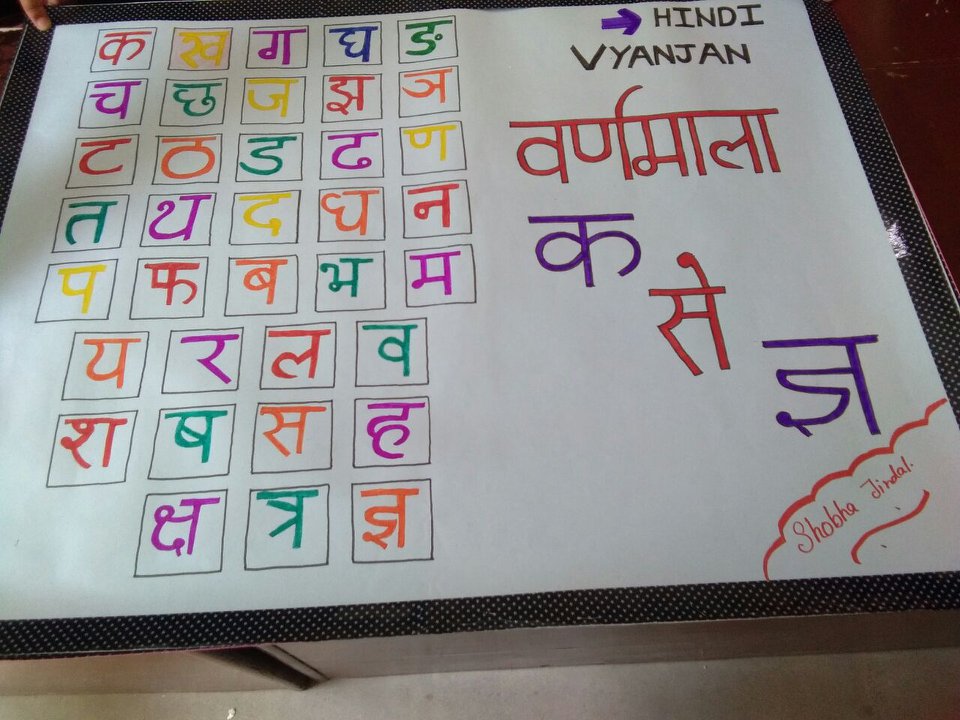 क ख ग घ ङ
च छ ज झ ञ
ट ठ ड ढ ण
त थ द ध न
प फ ब भ म
य र ल व
श ष स ह
क्ष त्र ज्ञ
HINDI
VYANJAN
वर्णमाला
क
से
ज्ञ
Shobha Jindal.